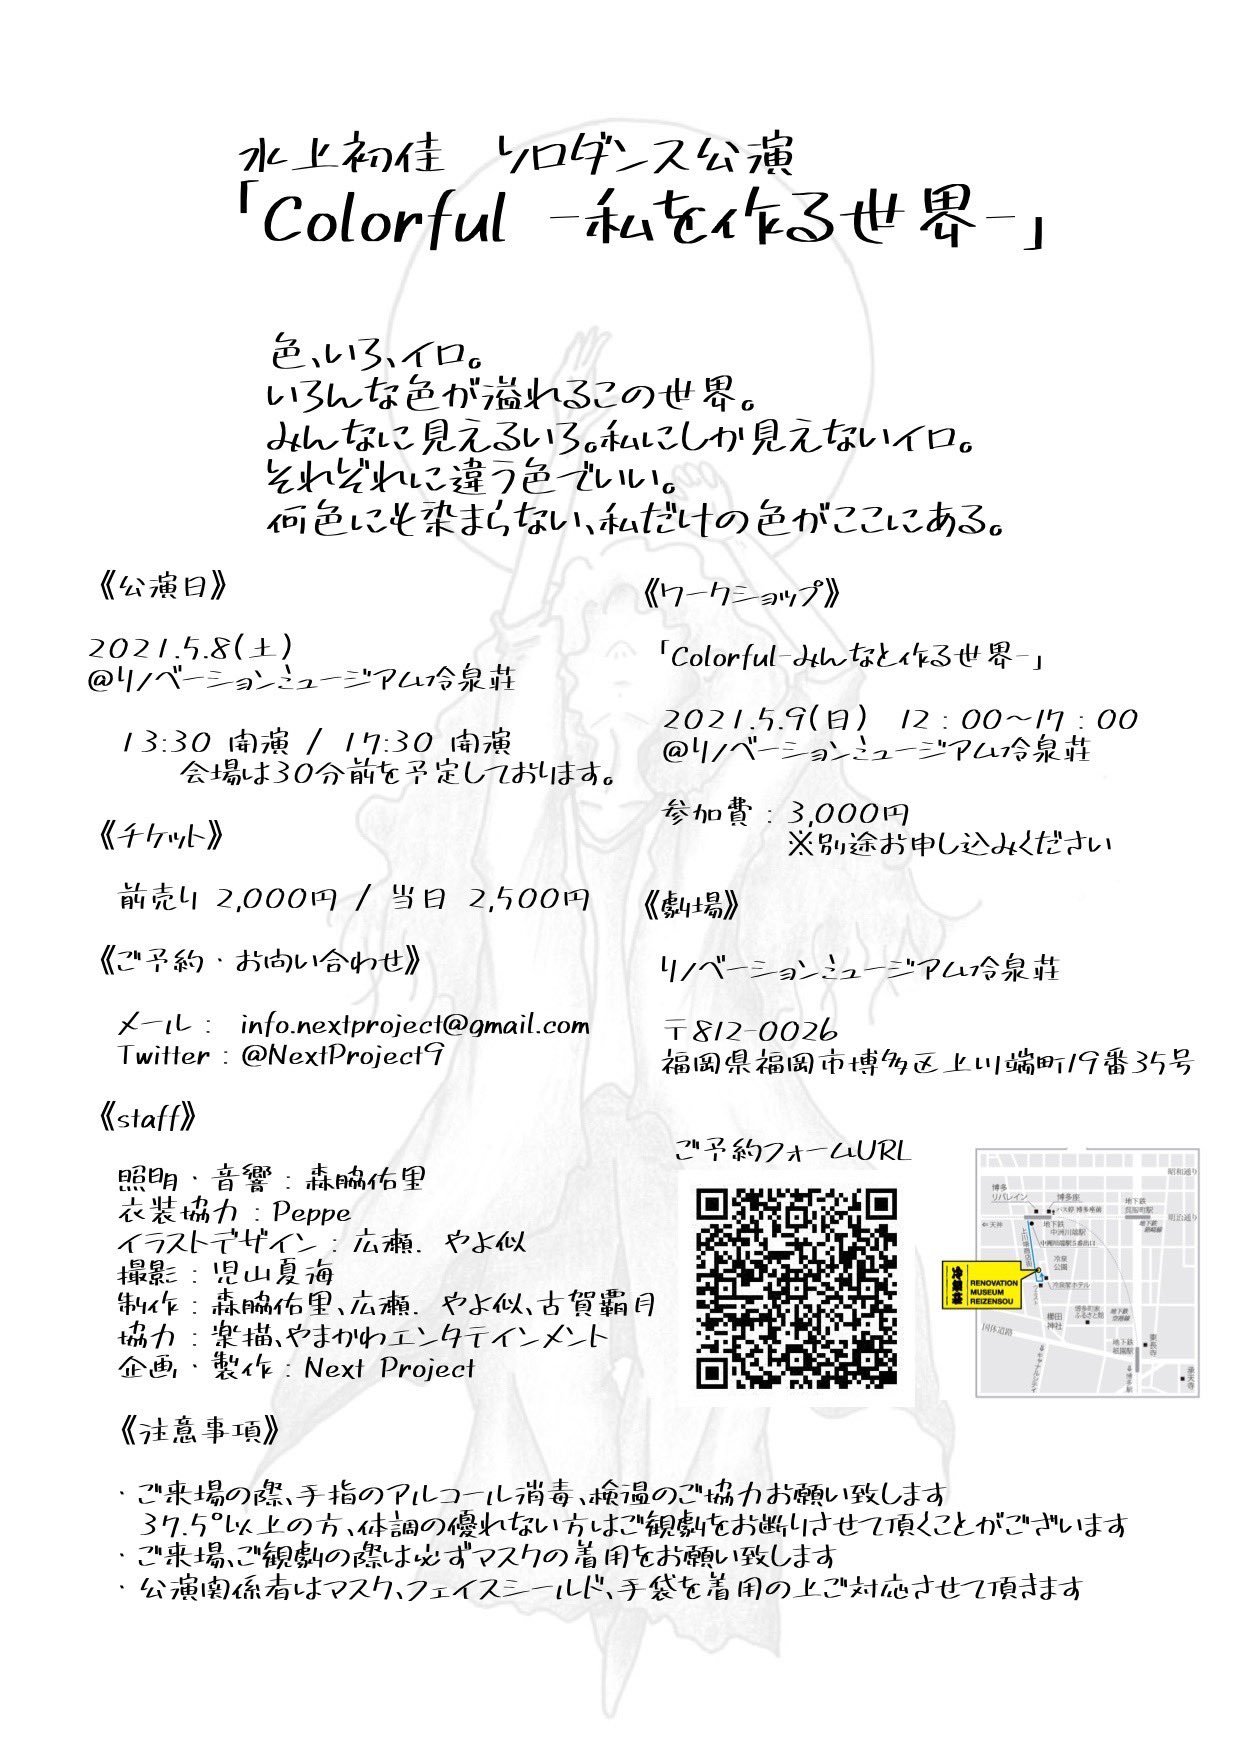 水上初佳　ソロダンス公演
「Colorful －私を作る世界－」
色、いろ、イロ。
いろんな色が溢れるこの世界。
みんなに見えるいろ。私にしか見えないイロ。
それぞれに違う色でいい。
何色にも染まらない、私だけの色がここにある。
《公演日》
2021.5.8(土)
@リノベーションミュージアム冷泉荘
13:30 開演 / 17:30 開演
会場は30分前を予定しております。
《チケット》
前売り 2,000円 / 当日 2,500円
《ご予約・お問い合わせ》
メール： info.nextproject@gmail.com
Twitter：@NextProject9
《staff》
照明・音響：森脇佑里
衣装協力：Peppe
イラストデザイン：広瀬．やよ似
撮影：児山夏海
制作：森脇佑里、広瀬．やよ似、古賀覇月
協力：楽描、やまかわエンタテインメント
企画・製作：Next Project
《ワークショップ》
「Colorful－みんなと作る世界－」
2021.5.9(日)　12：00〜17：00
@リノベーションミュージアム冷泉荘
参加費：3,000円
※別途お申し込みください
《劇場》
リノベーションミュージアム冷泉荘
〒812-0026
福岡県福岡市博多区上川端町19番35号
ご予約フォームURL
昭和通り
博多
リバレイン
博多座
バス停 博多座前
地下鉄
呉服町駅
明治通り
←天神
地下鉄
中洲川端駅
中洲川端駅5番出口
上川端商店街
冷泉
公園
冷泉荘
RENOVATION
MUSEUM
REIZENSOU
冷泉閣ホテル
博多町家
ふるさと館
地下鉄
空港線
櫛田
神社
国体道路
地下鉄
祇園駅
東長寺
承天寺
キャナルシティ
博多駅
《注意事項》
・ご来場の際、手指のアルコール消毒、検温のご協力お願い致します
37.5°以上の方、体調の優れない方はご観劇をお断りさせて頂くことがございます
・ご来場、ご観劇の際は必ずマスクの着用をお願い致します
・公演関係者はマスク、フェイスシールド、手袋を着用の上ご対応させて頂きます